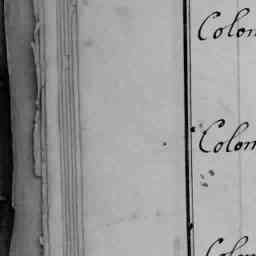 Colon
Colom
Colom